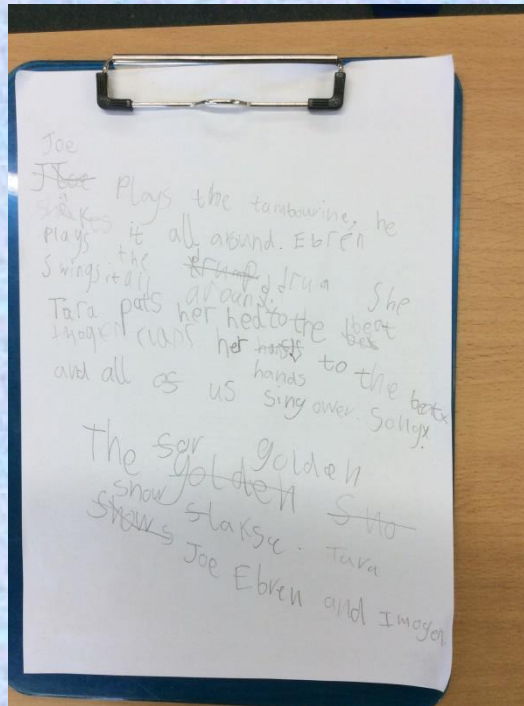 Joe
plays the tambourine, he
shakes it all around. Ebren
plays the drum She
swings it all around.
Tara pats her hed to the beat
Imogen claps her hands to the beat
and all os us sing ower songx.
The golden
snow slakse. Tara
Joe Ebren and Imogen